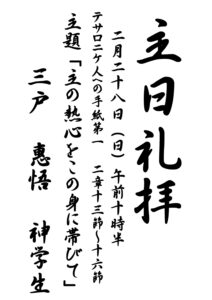 主日礼拝
二月二十八日（日）午前十時半
テサロニケ人への手紙第一　二章十三節〜十六節
主題「主の熱心をこの身に帯びて」
三戸　惠悟　神学生